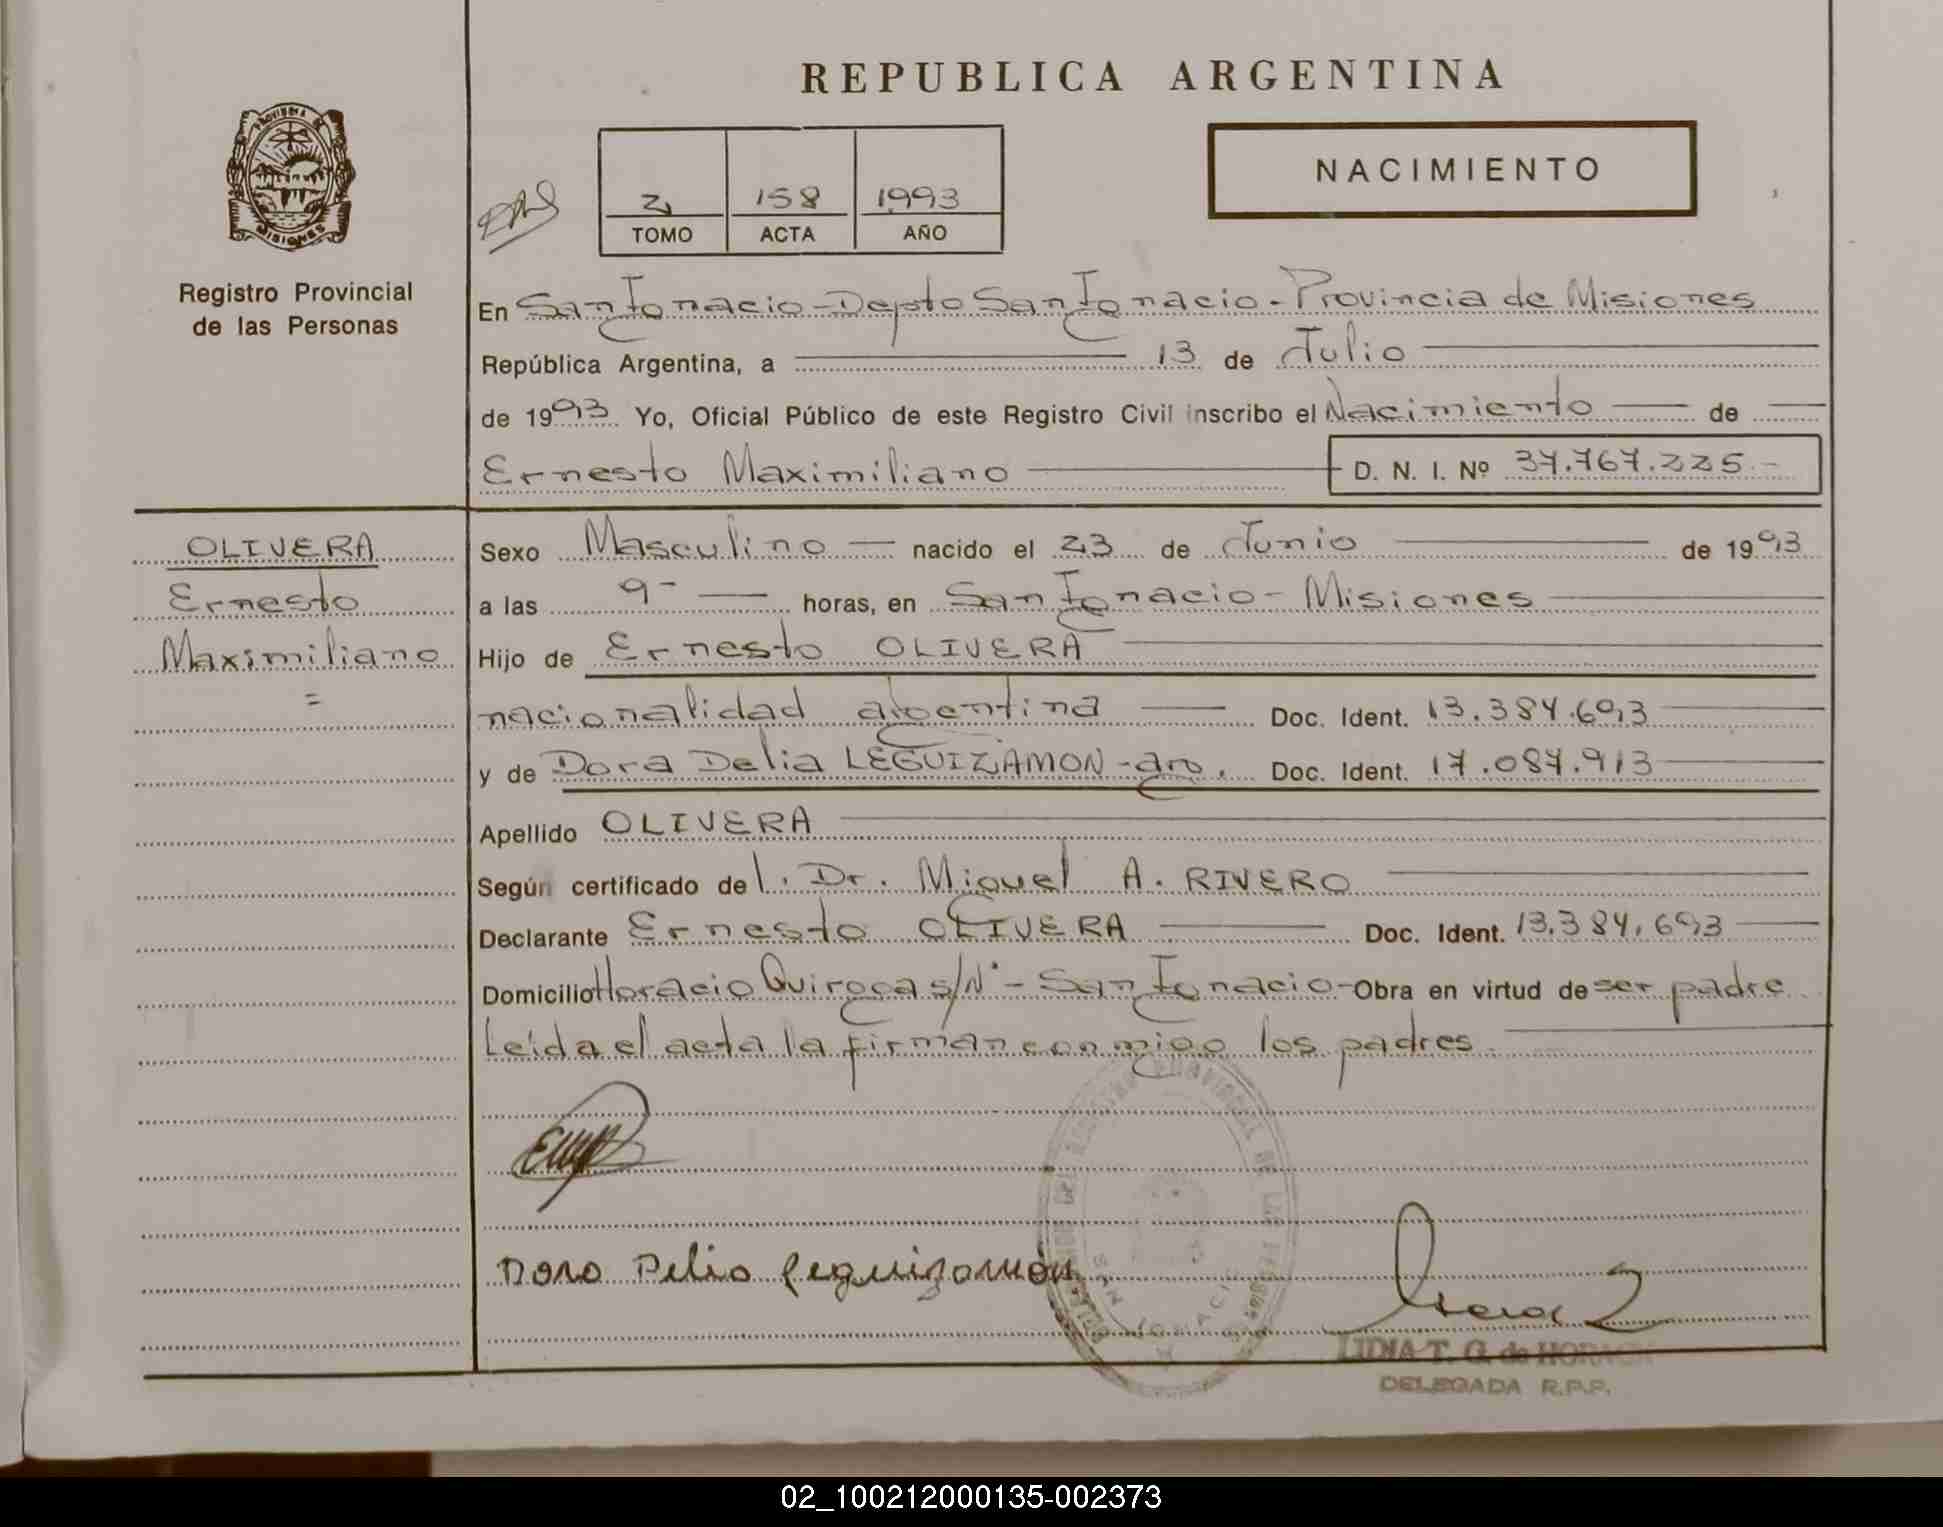 REPUBLICA ARGENTINA
PROVINCIA DE
MISIONES
Registro Provincial
de las Personas
2 158 1993
TOMO ACTA AÑO
NACIMIENTO
En San Ignacio - Depto San Ignacio - Provincia de Misiones
República Argentina, a 13 de Julio
de 1993 Yo, Oficial Público de este Registro Civil inscribo el Nacimiento de
Ernesto Maximiliano D. N. I. Nº 37.767.225.-
OLIVERA
Ernesto
Maximiliano
=
Sexo Masculino nacido el 23 de Junio de 1993
a las 9- horas, en San Ignacio - Misiones
Hijo de Ernesto OLIVERA
nacionalidad argentina Doc. Ident. 13.384.693
y de Dora Delia LEGUIZAMON - arg. Doc. Ident. 17.087.913
Apellido OLIVERA
Según certificado de l. Dr. Miguel A. RIVERO
Declarante Ernesto OLIVERA Doc. Ident. 13.384.693
Domicilio Horacio Quiroga s/Nº - San Ignacio - Obra en virtud de ser padre
Leída el acta la firman conmigo los padres.
Dora Delia Leguizamón
SAN IGNACIO
LIDIA T. G. de
DELEGADA R.P.P.
02_100212000135-002373